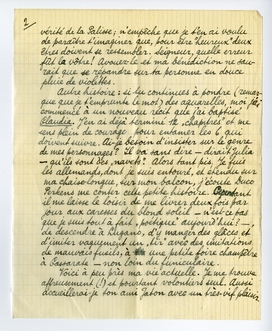 2
vérité de La Palisse ; n'empêche que je t'en ai voulu
de paraître t'imaginer que, pour être heureux deux
êtres doivent se ressembler. Seigneur, quelle erreur
fût la vôtre ! Avouez-le et ma bénédiction ne sau-
rait que se répandre sur ta personne en douce
pluie de violettes.
Autre histoire : si tu continues à pondre (remar-
que que je t'emprunte le mot) des aquarelles, moi j'ai
commencé à un nouveau récit que j'ai baptisé
Claudia. J'en ai déjà terminé 12 chapitres et me
sens plein de courage pour entamer les 6 qui
doivent suivre. Ai-je besoin d'insister sur le genre
de mes personnages ? Il va sans dire — dirait Julia
— qu'ils sont des "navets". Alors tant pis. Je fuis
les allemands, dont je suis entouré, et étendu sur
ma chaise-longue, sur mon balcon, j'écoute Luce
Perkens me conter cette petite histoire.
il me laisse le loisir de me livrer deux fois par
jour aux caresses du blond soleil — n'est-ce pas
que je suis tout à fait "poétique" aujourd'hui ? —
de descendre à Lugano, d'y manger des glaces et
d'imiter vaguement un "tir" avec des imitations
de mauvais fusils, à une petite foire champêtre
à Cassarate — non loin du funiculaire.
Voici à peu près ma vie actuelle. Je me trouve
affreusement (!) et pourtant volontiers seul. Aussi
accueillerai-je ton ami Jaton avec un très vif plaisir.